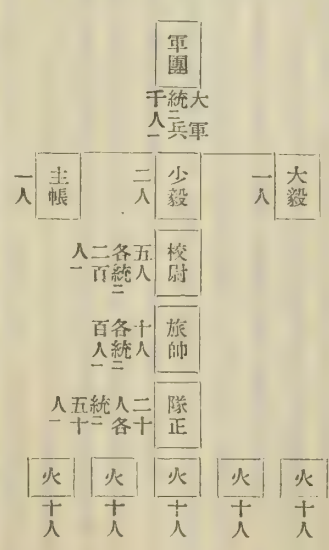 軍團
大軍
統二兵
千人一
大毅
一人
少毅
二人
主帳
一人
校尉
五人
各統二
二百
人一
旅帥
十人
各統二
百人一
隊正
二十
人各
統二
五十
人一
火
十人
火
十人
火
十人
火
十人
火
十人